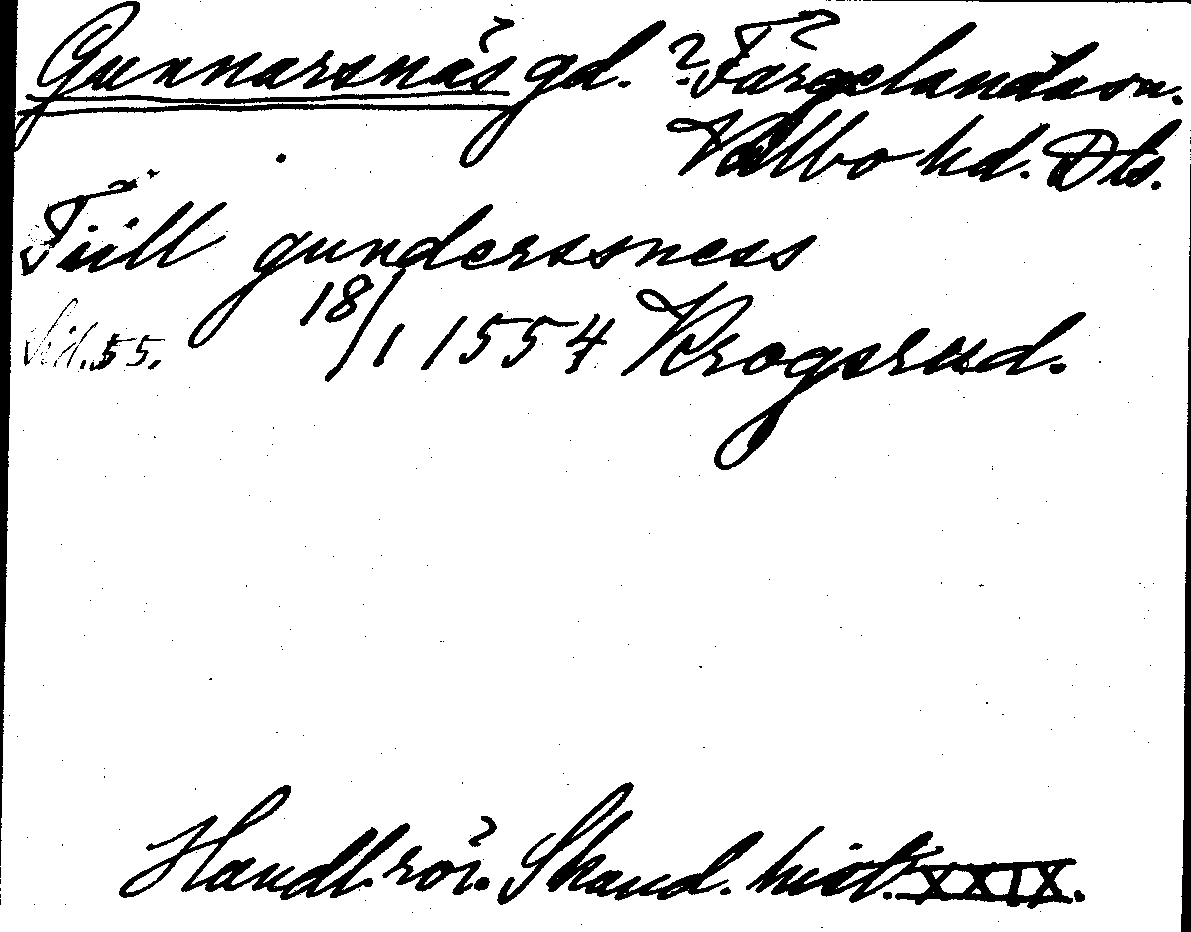 Gunnarsnäs gd. ? Färgelanda sn.
Valbo hd. Dls.
Tiill gunderssness
Sid. 55. 18/1 1554 Krogsrud.
Handl. rör. Skand. hist. XXIX.